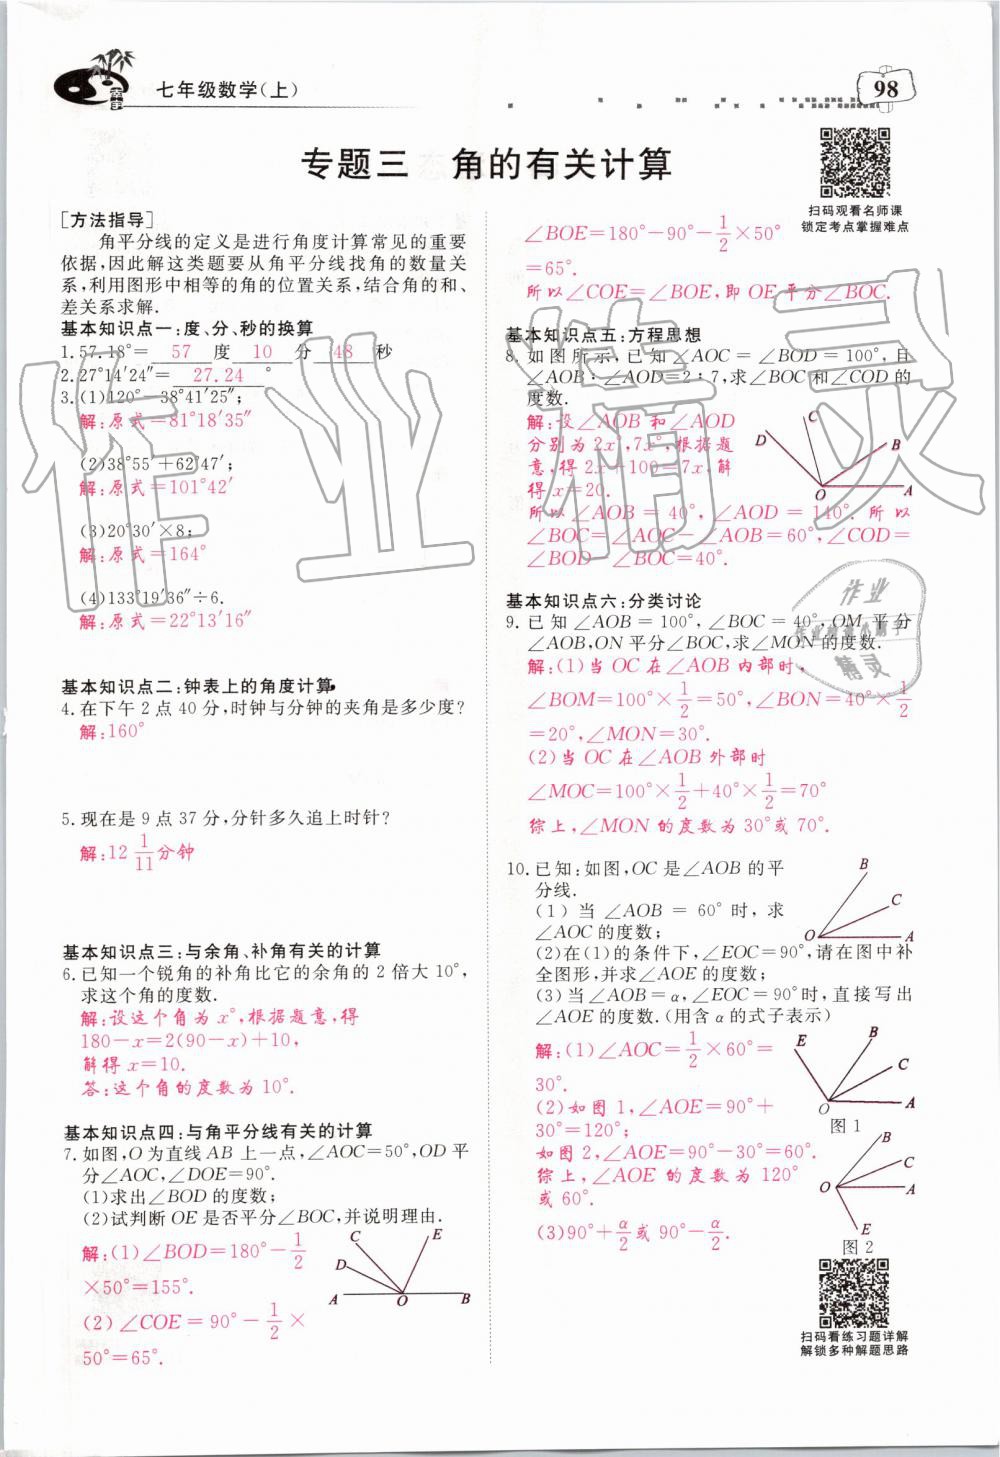 七年级数学(上)
98
专题三 角的有关计算
扫码观看名师课
锁定考点掌握难点
[方法指导]
角平分线的定义是进行角度计算常见的重要
依据,因此解这类题要从角平分线找角的数量关
系,利用图形中相等的角的位置关系,结合角的和、
差关系求解.
基本知识点一:度、分、秒的换算
1.57.18°= 57 度 10 分 48 秒
2.27°14′24″= 27.24 °
3.(1)120°-38°41′25″;
解:原式=81°18′35″
(2)38°55′+62°47′;
解:原式=101°42′
(3)20°30′×8;
解:原式=164°
(4)133°19′36″÷6.
解:原式=22°13′16″
基本知识点二:钟表上的角度计算
4.在下午2点40分,时钟与分钟的夹角是多少度?
解:160°
5.现在是9点37分,分针多久追上时针?
解:12 1/11 分钟
基本知识点三:与余角、补角有关的计算
6.已知一个锐角的补角比它的余角的2倍大10°,
求这个角的度数.
解:设这个角为x°,根据题意,得
180-x=2(90-x)+10,
解得x=10.
答:这个角的度数为10°.
基本知识点四:与角平分线有关的计算
7.如图,O为直线AB上一点,∠AOC=50°,OD平
分∠AOC,∠DOE=90°.
(1)求出∠BOD的度数;
(2)试判断OE是否平分∠BOC,并说明理由.
解:(1)∠BOD=180°-1/2
×50°=155°.
(2)∠COE=90°-1/2×
50°=65°.
C E
D
A O B
∠BOE=180°-90°-1/2×50°
=65°.
所以∠COE=∠BOE,即OE平分∠BOC.
基本知识点五:方程思想
8.如图所示,已知∠AOC=∠BOD=100°,且
∠AOB:∠AOD=2:7,求∠BOC和∠COD的
度数.
解:设∠AOB和∠AOD
分别为2x°,7x°,根据题
意,得2x+100=7x,解
得x=20.
所以∠AOB=40°,∠AOD=140°.所以
∠BOC=∠AOC-∠AOB=60°,∠COD=
∠BOD-∠BOC=40°.
C
D B
O A
基本知识点六:分类讨论
9.已知∠AOB=100°,∠BOC=40°,OM平分
∠AOB,ON平分∠BOC,求∠MON的度数.
解:(1)当OC在∠AOB内部时,
∠BOM=100°×1/2=50°,∠BON=40°×1/2
=20°,∠MON=30°.
(2)当OC在∠AOB外部时
∠MOC=100°×1/2+40°×1/2=70°
综上,∠MON的度数为30°或70°.
10.已知:如图,OC是∠AOB的平
分线.
(1)当∠AOB=60°时,求
∠AOC的度数;
(2)在(1)的条件下,∠EOC=90°,请在图中补
全图形,并求∠AOE的度数;
(3)当∠AOB=α,∠EOC=90°时,直接写出
∠AOE的度数.(用含α的式子表示)
B
C
O A
解:(1)∠AOC=1/2×60°=
30°.
(2)如图1,∠AOE=90°+
30°=120°;
如图2,∠AOE=90°-30=60°.
综上,∠AOE的度数为120°
或60°.
(3)90°+α/2或90°-α/2.
E B
C
O A
图1
B
C
O A
E
图2
扫码看练习题详解
解锁多种解题思路
作业精灵
作业
精灵